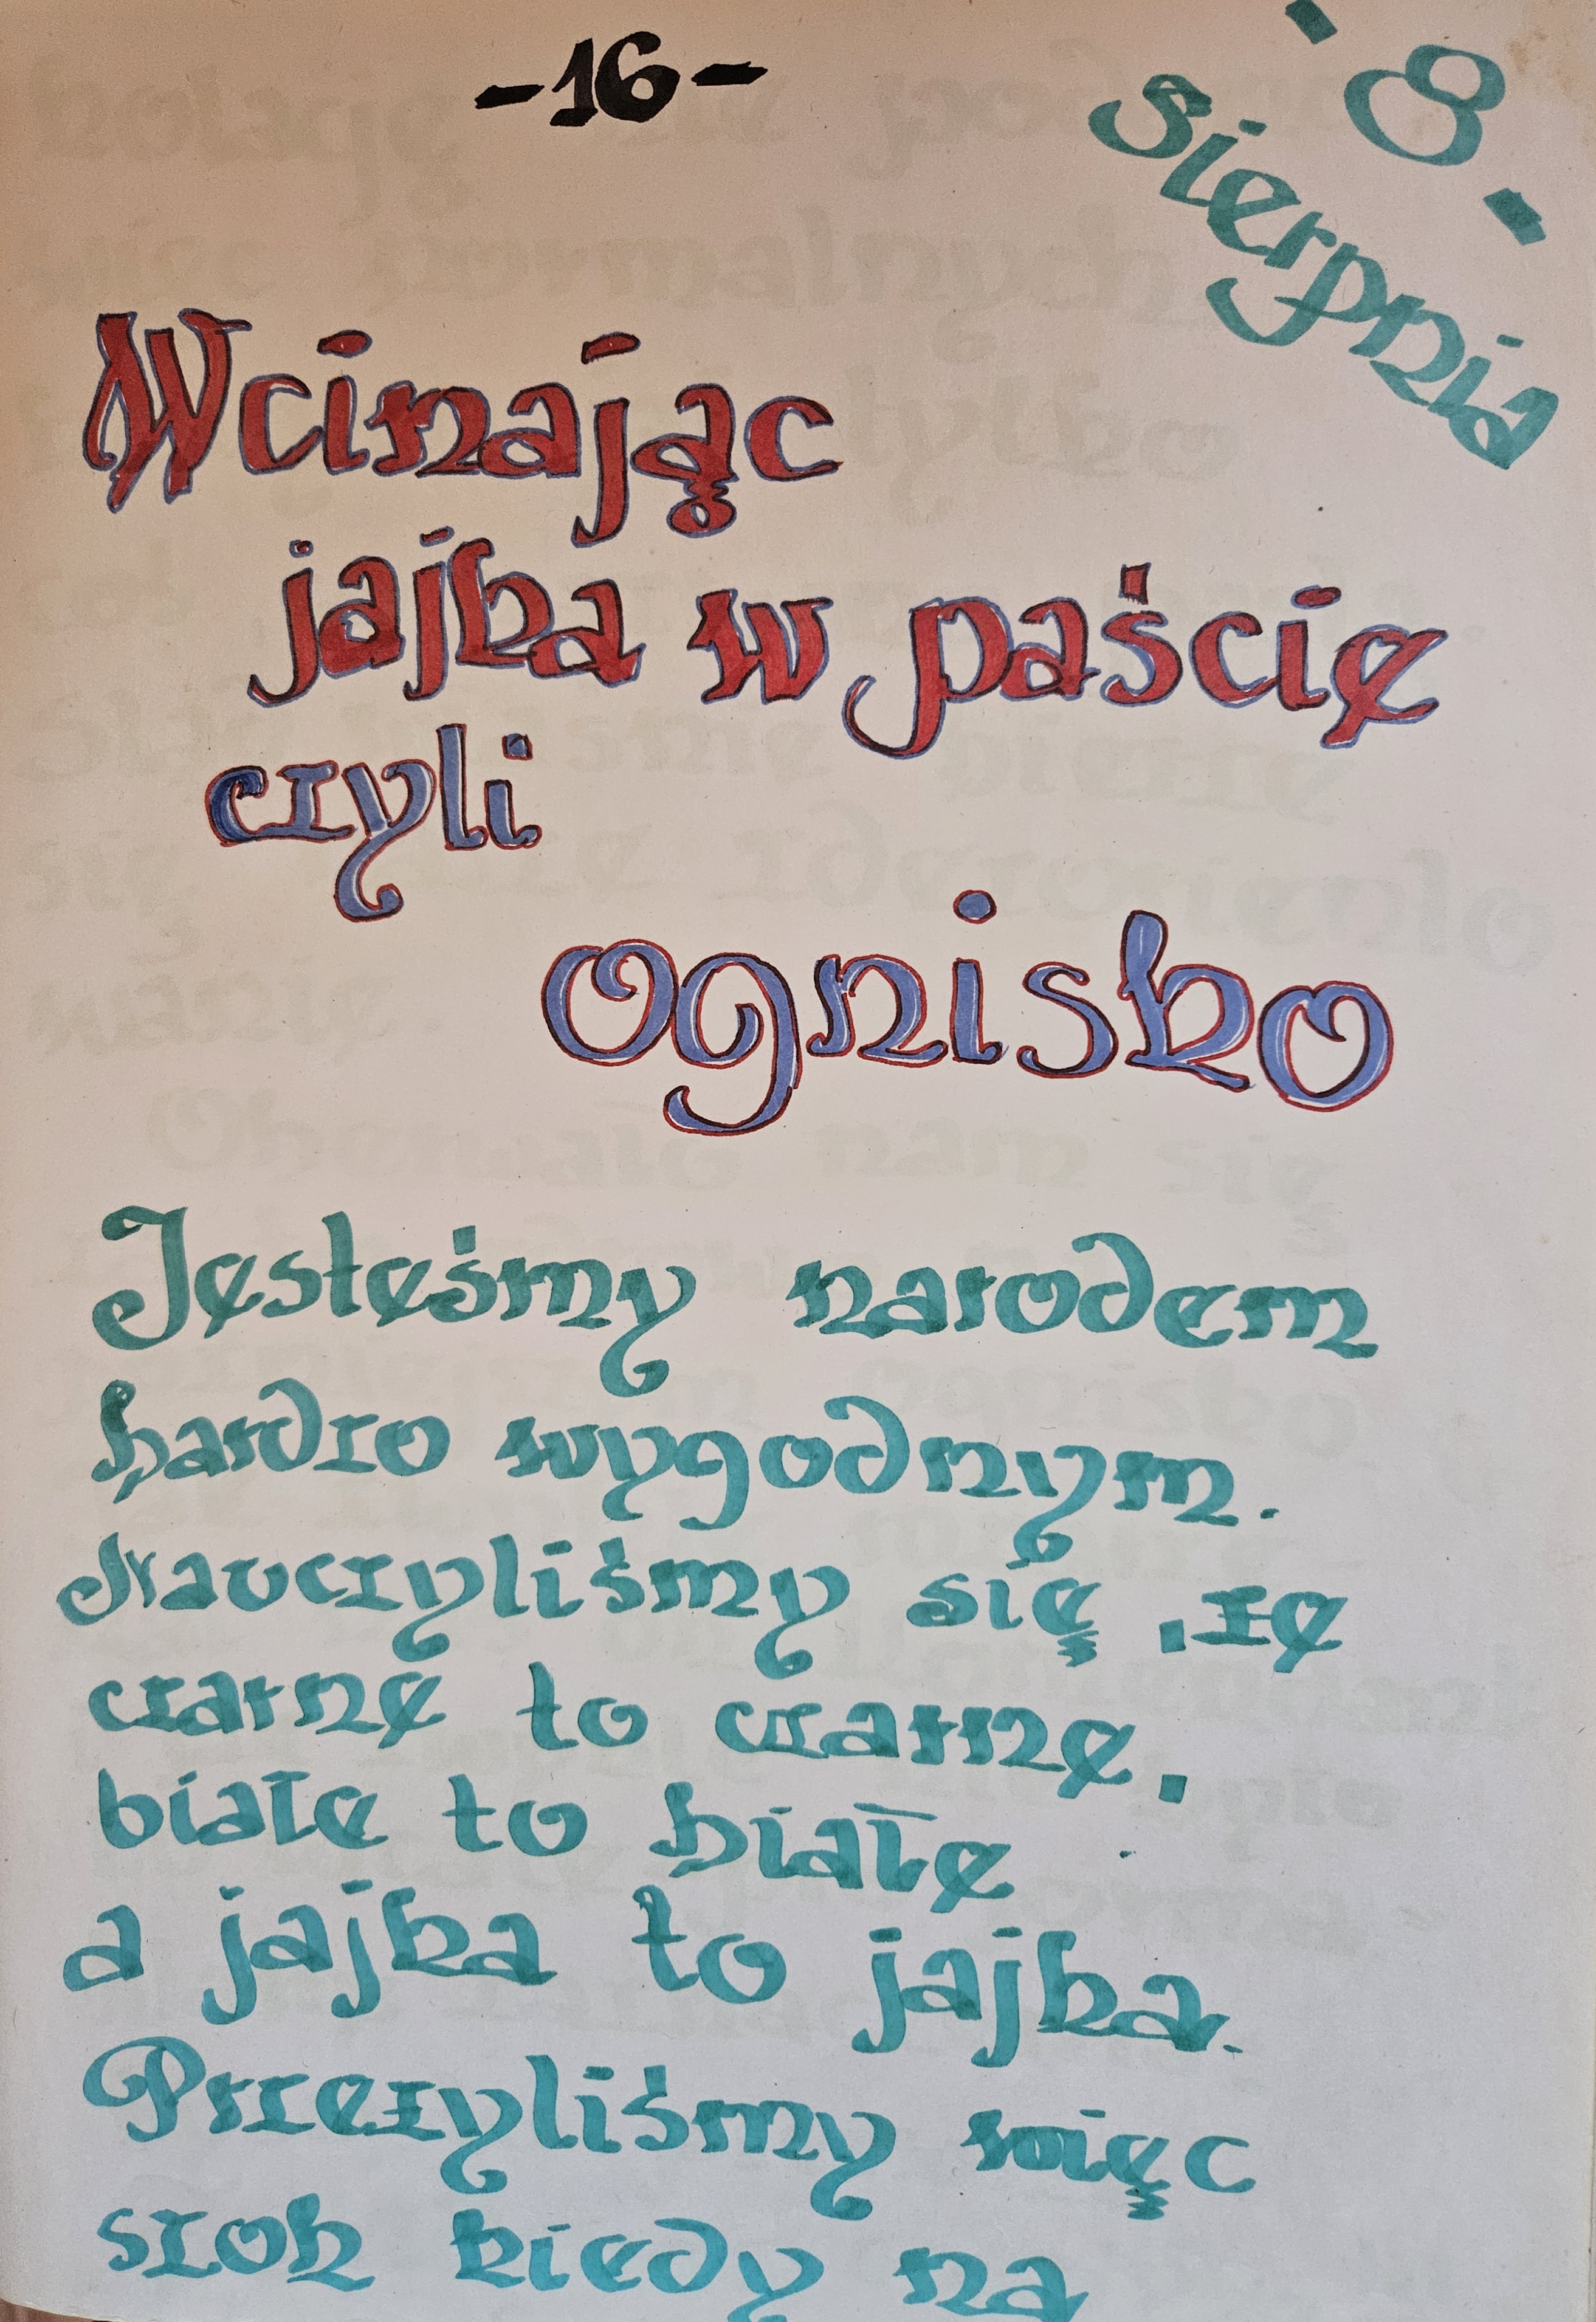 -16-
- 8 -
sierpnia
Wcinając
jajka w paście
czyli
ognisko
Jesteśmy narodem
bardzo wygodnym.
Nauczyliśmy się, że
czarne to czarne,
białe to białe
a jajka to jajka.
Przeżyliśmy więc
szok kiedy na